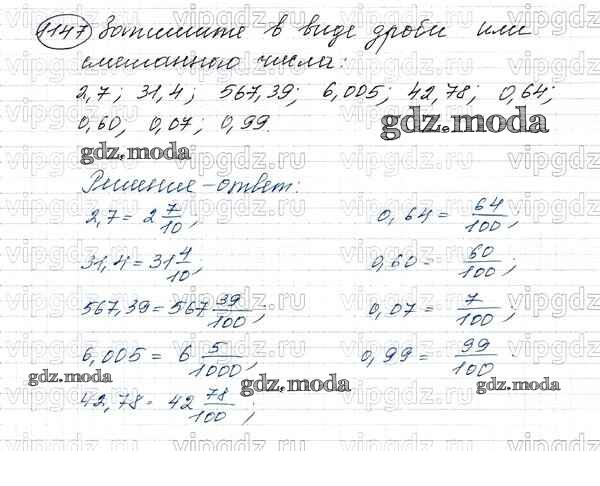 1147 Запишите в виде дроби или
смешанного числа:
2,7; 31,4; 567,39; 6,005; 42,78; 0,64;
0,60, 0,07; 0,99.
gdz.moda
gdz.moda
Решение-ответ:
2,7 = 2 7/10;
31,4 = 31 4/10;
567,39 = 567 39/100;
6,005 = 6 5/1000;
42,78 = 42 78/100;
0,64 = 64/100;
0,60 = 60/100;
0,07 = 7/100;
0,99 = 99/100.
gdz.moda
gdz.moda
gdz.moda
vipgdz.ru